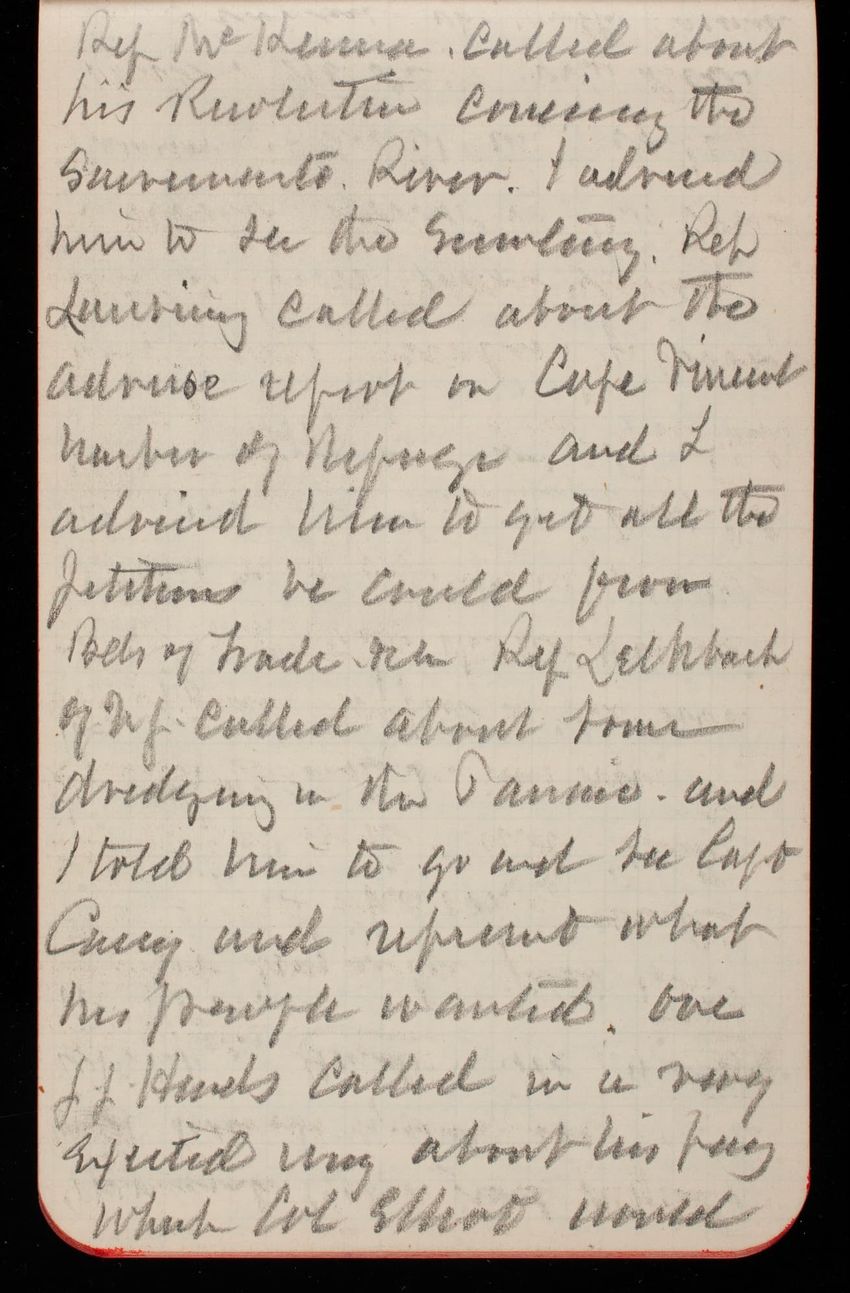 Rep McKenna. called about
his Resolution concerning the
Sacramento. River. I advised
him to see the Secretary. Rep
Lansing called about the
adverse report on Cape Vincent
harbor of Refuge and I
advised him to get all the
petitions he could from
Bds of Trade Rep Lelhbach
of NJ. called about some
dredging in the Passaic. and
I told him to go and see Capt
Casey and represent what
his people wanted. One
J J Hands called in a very
excited way about his pay
which Col Elliott would